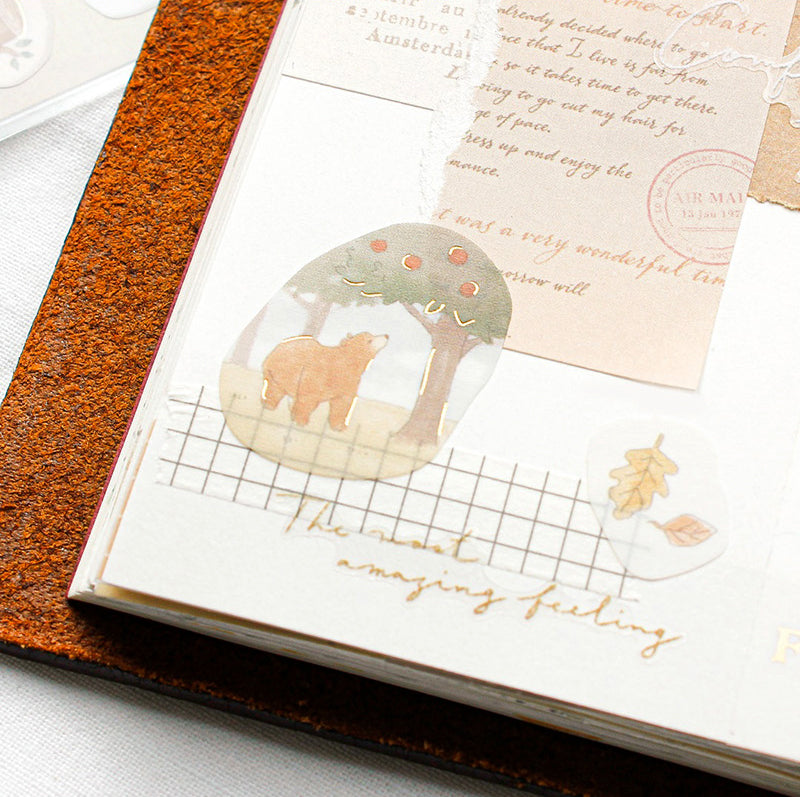 septembre
Amsterda
time to start.
already decided where to go
nce that I live is far from
so it takes time to get there.
oing to go cut my hair for
ge of pace.
ress up and enjoy the
mance.
AIR MAI
13 Jan 197
t was a very wonderful tim
orrow will
The most
amazing feeling
F